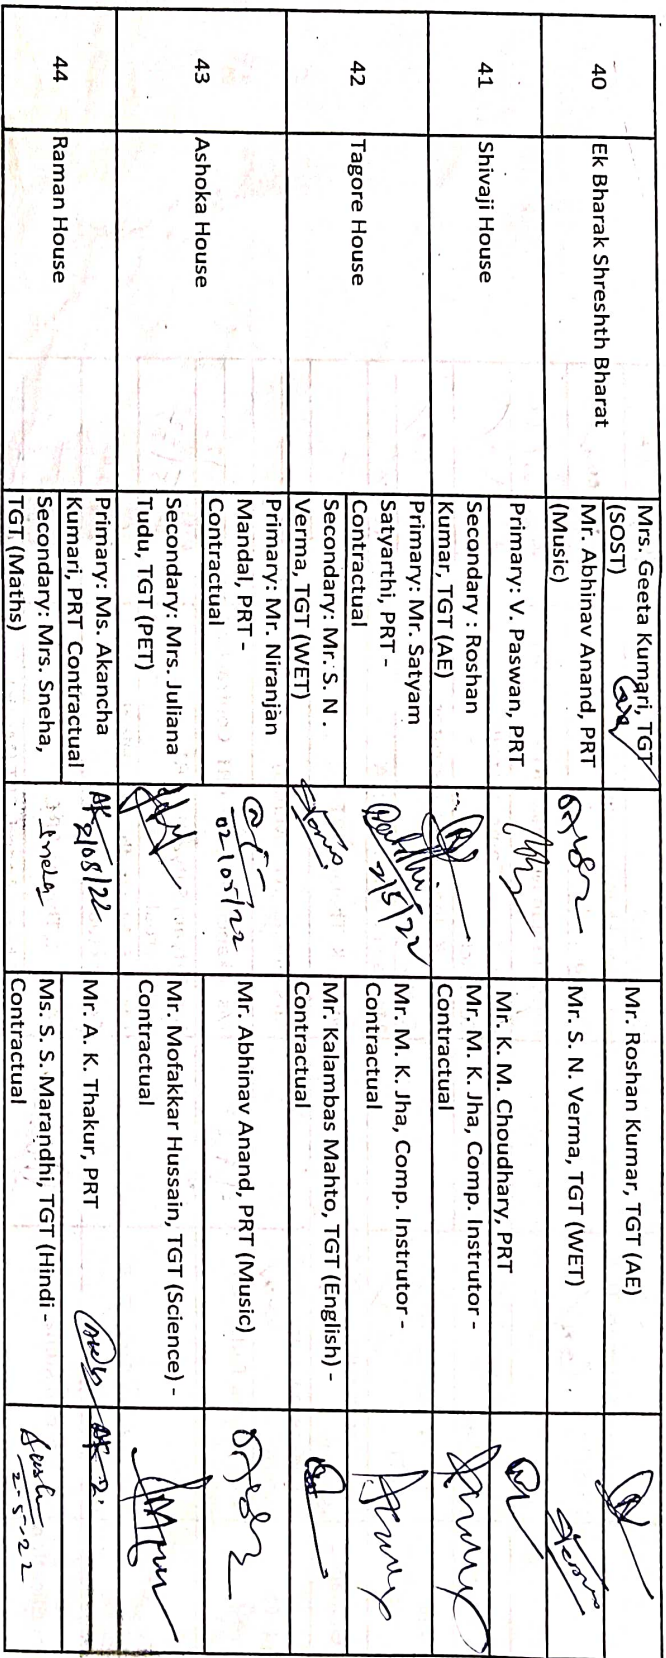 40
Ek Bharak Shreshth Bharat
Mrs. Geeta Kumari, TGT
(SOST)
Mr. Roshan Kumar, TGT (AE)
Mr. Abhinav Anand, PRT
(Music)
Mr. S. N. Verma, TGT (WET)
41
Shivaji House
Primary: V. Paswan, PRT
Mr. K. M. Choudhary, PRT
Secondary : Roshan
Kumar, TGT (AE)
Mr. M. K. Jha, Comp. Instrutor -
Contractual
42
Tagore House
Primary: Mr. Satyam
Satyarthi, PRT -
Contractual
2/5/22
Mr. M. K. Jha, Comp. Instrutor -
Contractual
Secondary: Mr. S. N .
Verma, TGT (WET)
Mr. Kalambas Mahto, TGT (English) -
Contractual
43
Ashoka House
Primary: Mr. Niranjan
Mandal, PRT -
Contractual
02/05/22
Mr. Abhinav Anand, PRT (Music)
Secondary: Mrs. Juliana
Tudu, TGT (PET)
Mr. Mofakkar Hussain, TGT (Science) -
Contractual
44
Raman House
Primary: Ms. Akancha
Kumari, PRT Contractual
AK
2/05/22
Mr. A. K. Thakur, PRT
Secondary: Mrs. Sneha,
TGT (Maths)
Sneha
Ms. S. S. Marandhi, TGT (Hindi -
Contractual
2-5-22